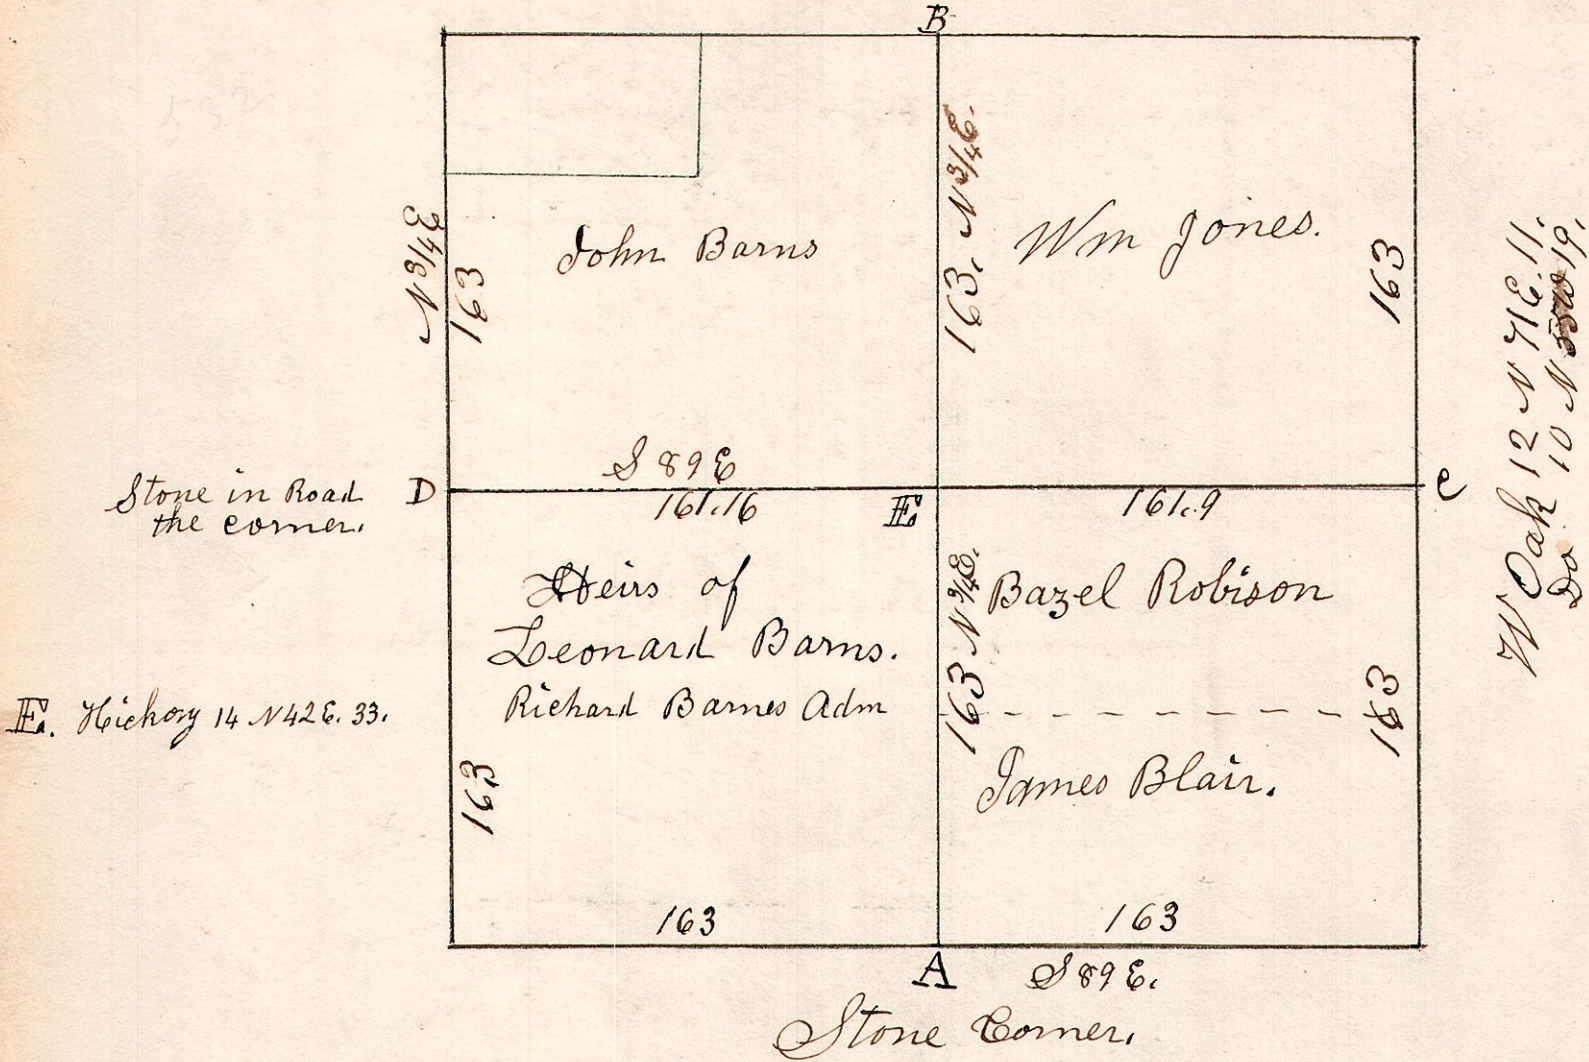 B
N 3/4 E
163
John Barns
163. N 3/4 E.
Wm Jones.
163
W Oak 12 N 71 E. 11.
Do 10 N 19.
S 89 E
Stone in Road
the corner.
D
161.16
E
161.9
C
Heirs of
Leonard Barns.
Richard Barnes Adm
163 N 3/4 E.
Bazel Robison
163
E. Hickory 14 N 42 E. 33.
James Blair.
163
163
163
A
S 89 E.
Stone Corner.